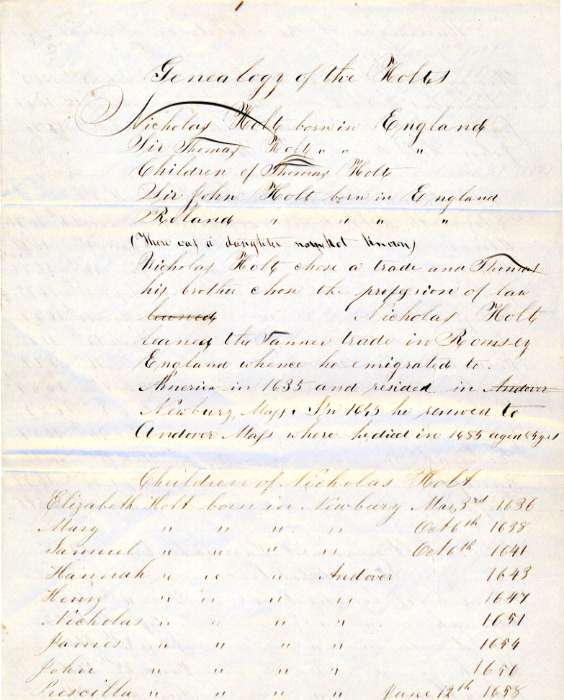 Genealogy of the Holts
Nicholas Holt born in England
Sir Thomas Holt " " "
Children of Thomas Holt
Sir John Holt born in England
Roland " " " "
(There was a daughter name not known)
Nicholas Holt chose a trade and Thomas
his brother chose the profession of law
learned Nicholas Holt
the Tanner trade in Romsey
England whence he emigrated to
America in 1635 and resided in Andover
Newbury, Mass. In 1645 he removed to
Andover Mass where he died in 1685 aged 83 yrs
Children of Nicholas Holt
Elizabeth Holt born in Newbury Mar 3rd 1636
Mary " " " " Oct 6th 1638
Samuel " " " " Oct 6th 1641
Hannah " " " Andover 1643
Henry " " " " 1647
Nicholas " " " " 1651
James " " " " 1654
John " " " " 1656
Priscilla " " " " June 12th 1658